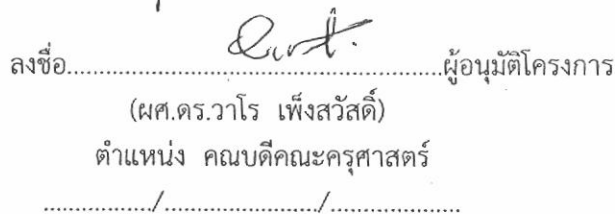 ลงชื่อ................................................ผู้อนุมัติโครงการ
(ผศ.ดร.วาโร เพ็งสวัสดิ์)
ตำแหน่ง คณบดีคณะครุศาสตร์
................/......................./...................